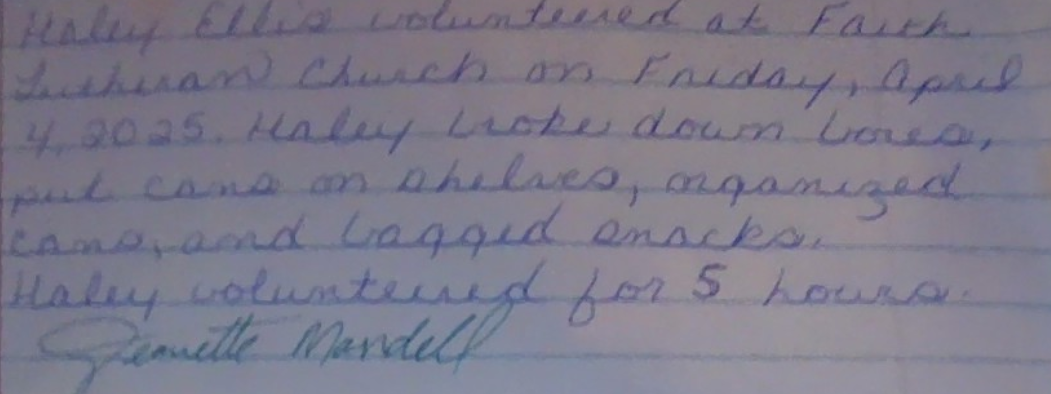 Haley Ellis volunteered at Faith
Lutheran Church on Friday, April
4, 2025. Haley broke down boxes,
put cans on shelves, organized
cans, and bagged snacks.
Haley volunteered for 5 hours.
Jeanette Mandell